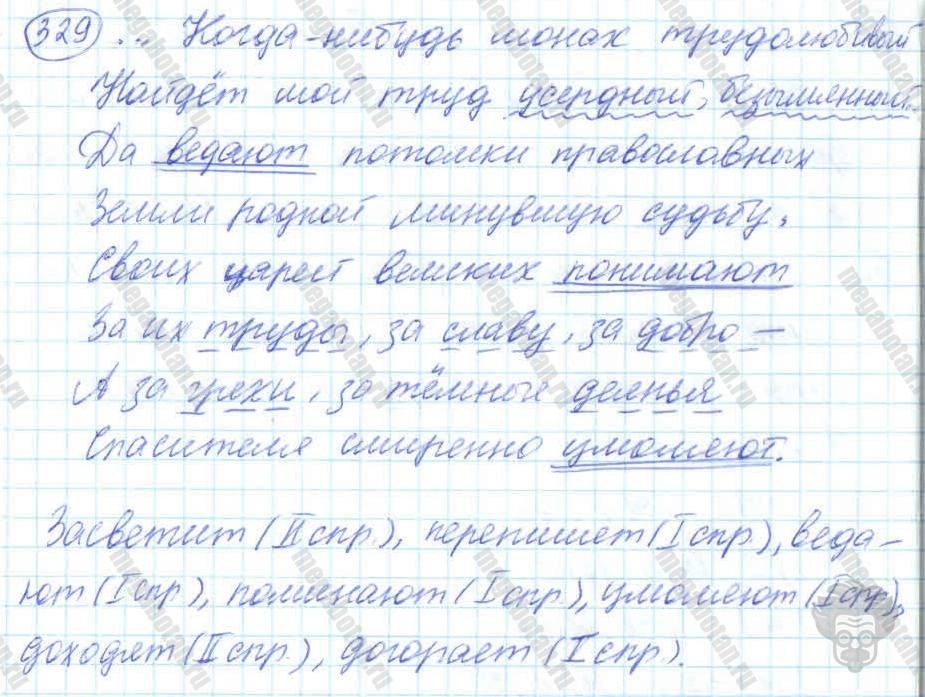 329 ... Когда-нибудь монах трудолюбивый
Найдёт мой труд усердный, безымянный.
Да ведают потомки православных
Земли родной минувшую судьбу,
Своих царей великих понимают
За их труды, за славу, за добро –
А за грехи, за тёмные деянья
Спасителя смиренно умоляют.
Засветит (II спр.), перепишет (I спр.), веда-
ют (I спр.), поминают (I спр.), умоляют (I спр.),
доходят (II спр.), догорает (I спр.).
megabotan.ru